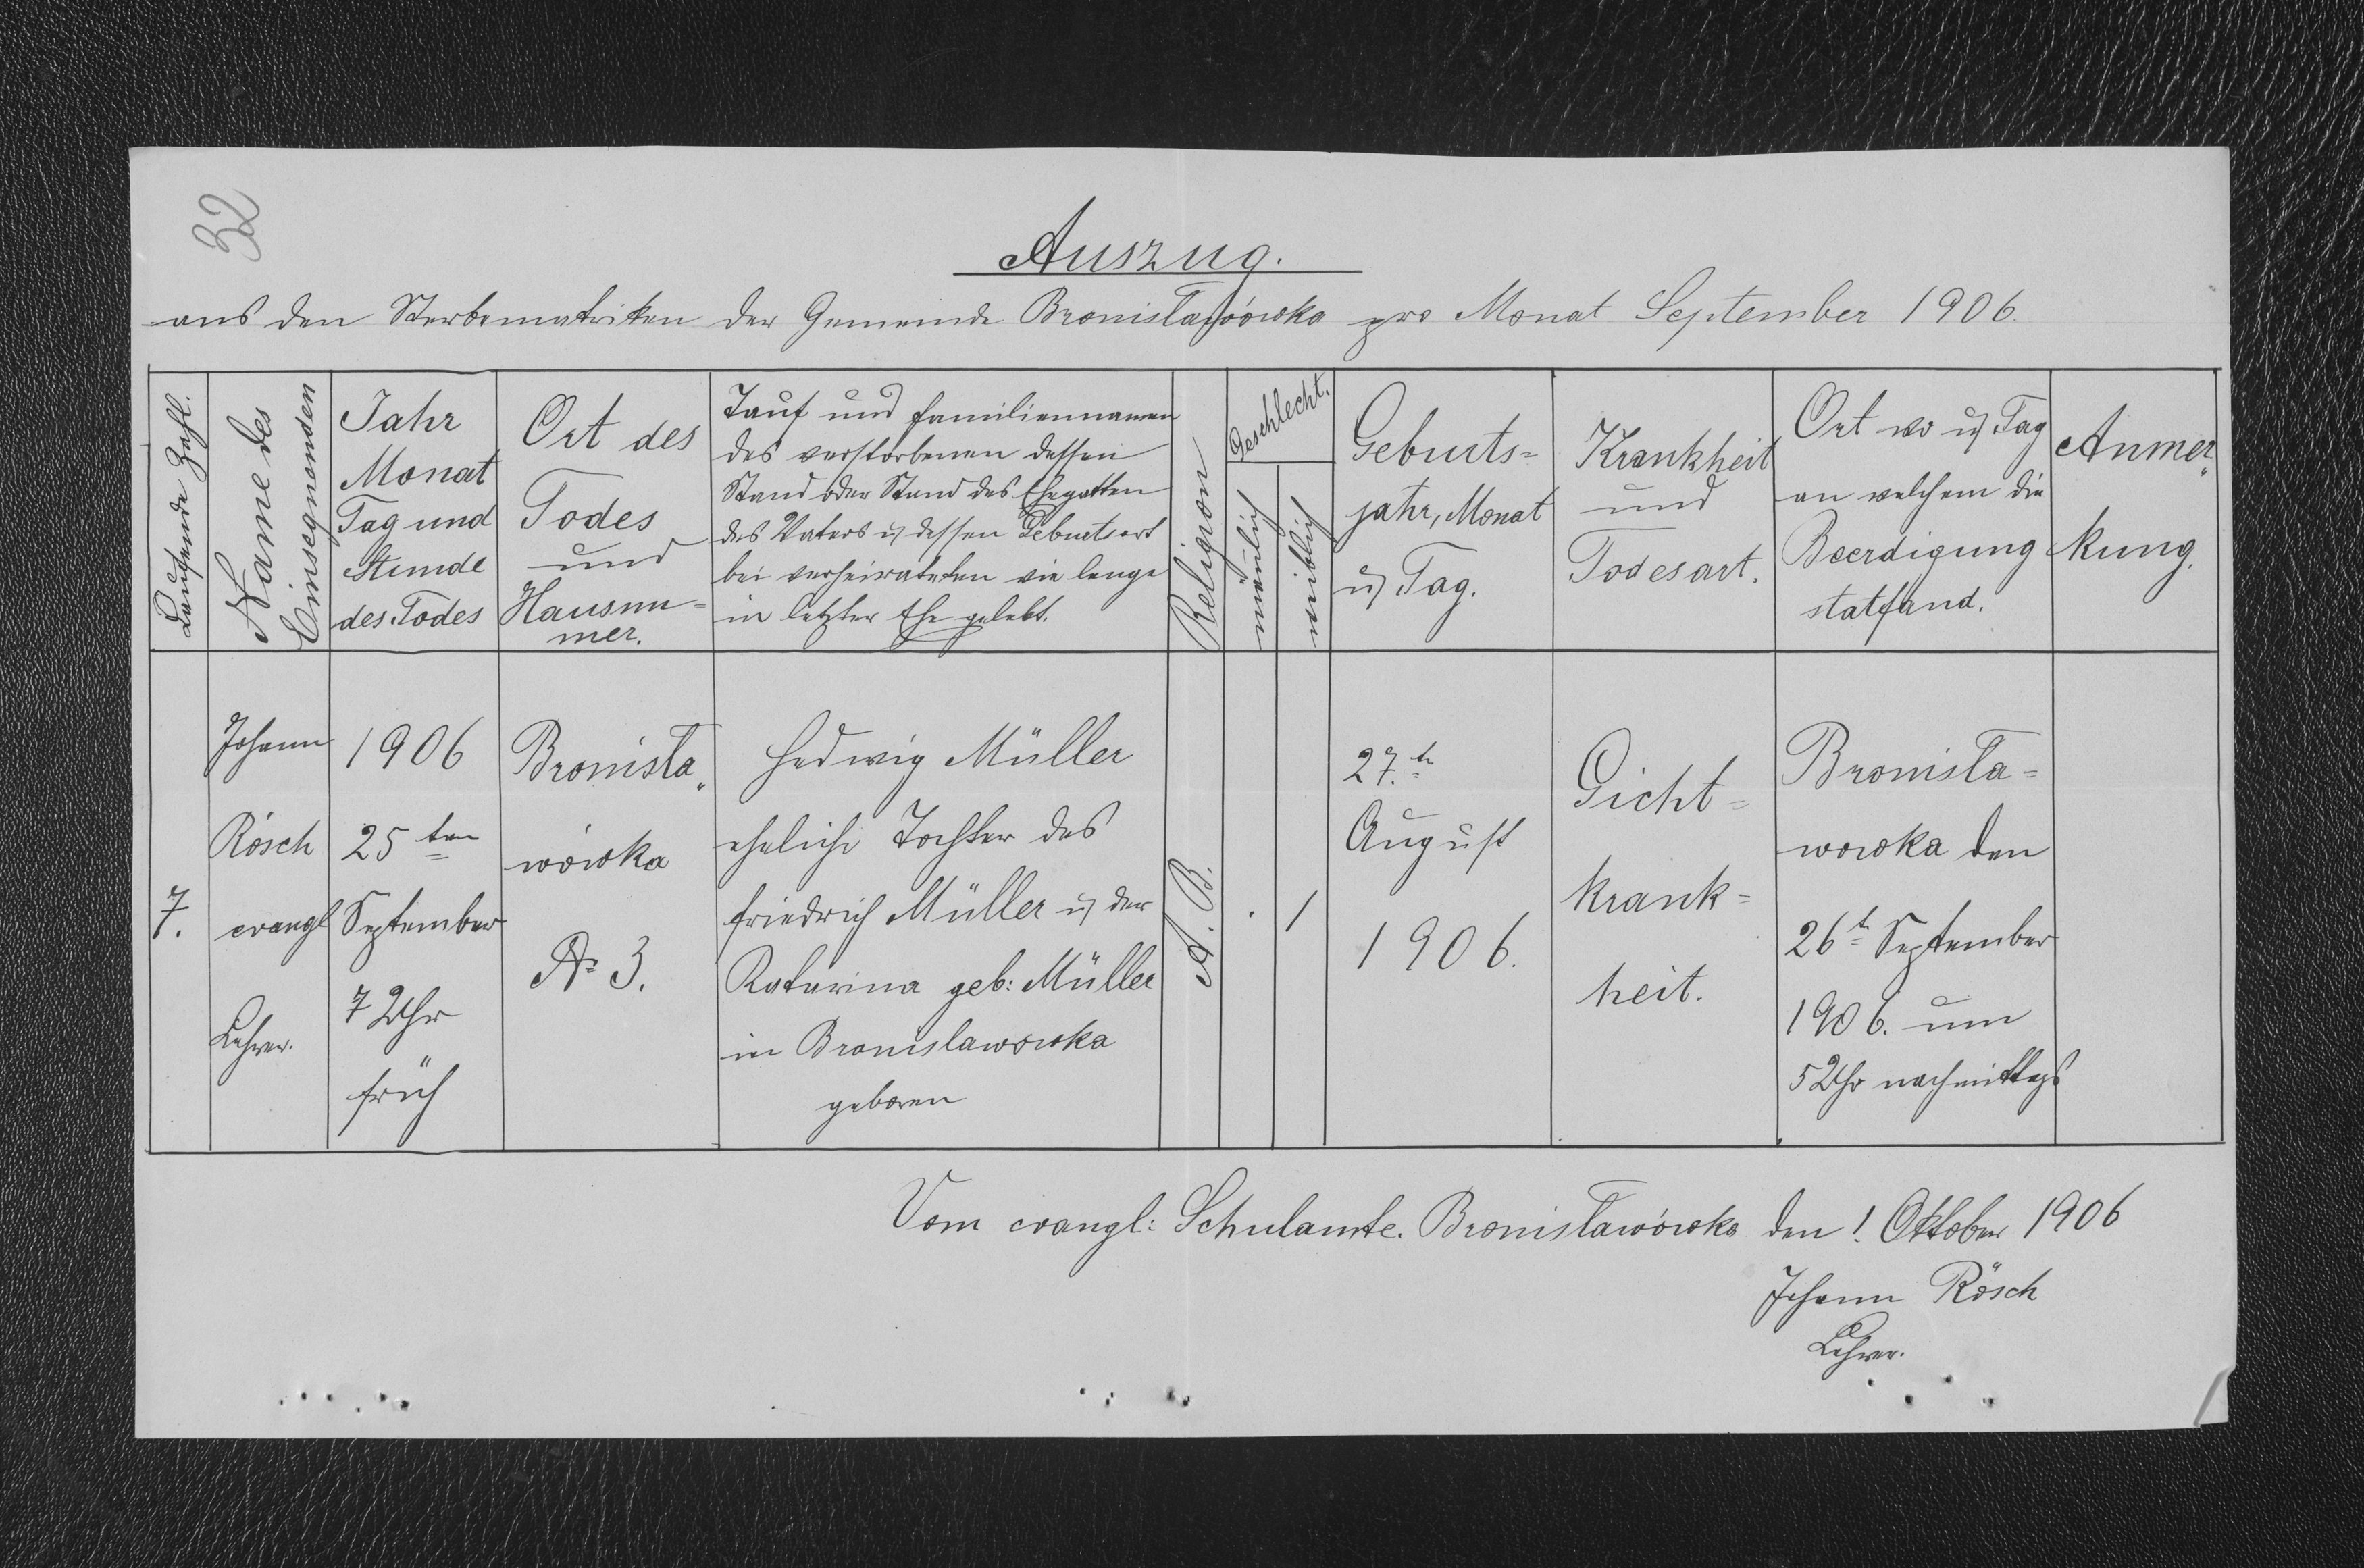 32
Auszug.
aus den Sterbematriken der Gemeinde Bronisławówka pro Monat September 1906.
Laufende Zahl.
Name des
Einsegnenden
Jahr
Monat
Tag und
Stunde
des Todes
Ort des
Todes
und
Hausnu=
mer.
Tauf und familiennamen
des verstorbenen dessen
Stand oder Stand des Ehegatten
des Vaters u dessen Geburtsort
bei verheirateten wie lange
in letzter Ehe gelebt.
Religion
Geschlecht.
mänlich
weiblich
Geburts=
jahr, Monat
u Tag.
Krankheit
und
Todesart.
Ort wo u Tag
an welchem die
Beerdigung
statfand.
Anmer„
kung.
7.
Johann
Rösch
evangl
Lehrer.
1906
25ten
September
7 Uhr
früh
Bronisła„
wówka
No 3.
Hedwig Müller
eheliche Tochter des
friedrich Müller u der
Katarina geb: Müller
in Bronislawowka
geboren
A. B.
.
1
27.t
August
1906.
Gicht=
krank=
heit.
Bronisła=
wowka den
26t September
1906. um
5 Uhr nachmittags
Vom evangl: Schulamte. Bronisławówka den 1. Oktober 1906
Johann Rösch
Lehrer.